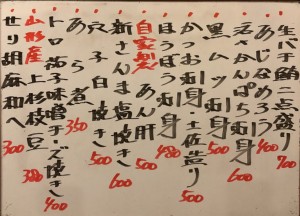 生バチ鮪二点盛り 700
あじなめろう 400
炙かんぱち刺身 600
黒ムツ刺身
かつお刺身・土佐造り 500
ほうぼう刺身 480
自家製 あん肝
新さんま塩焼き 600
穴子白焼き 500
あら煮 350
トロ茄子味噌チーズ焼き 400
山形産 上杉枝豆 380
せり胡麻和へ 300